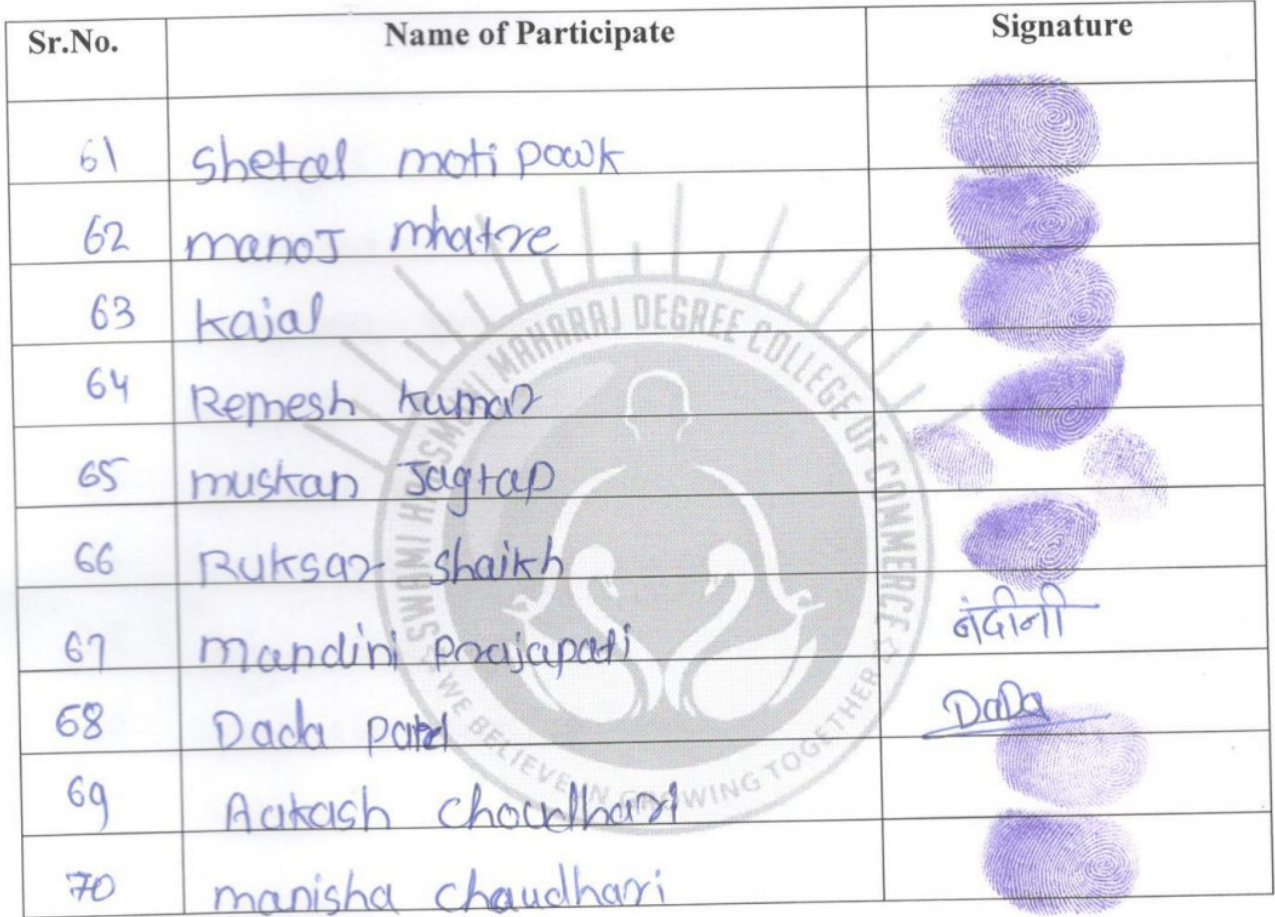 Sr.No. Name of Participate Signature
61 Shetal moti powk
62 manoJ mhatre
63 kajal
64 Remesh kumar
65 muskan Jagtap
66 Ruksar shaikh
67 mandini Prajapati नंदीनी
68 Dada patel DaDa
69 Aakash choudhari
70 manisha chaudhari
SWAMI HANSMUNI MAHARAJ DEGREE COLLEGE OF COMMERCE
WE BELIEVE IN GROWING TOGETHER